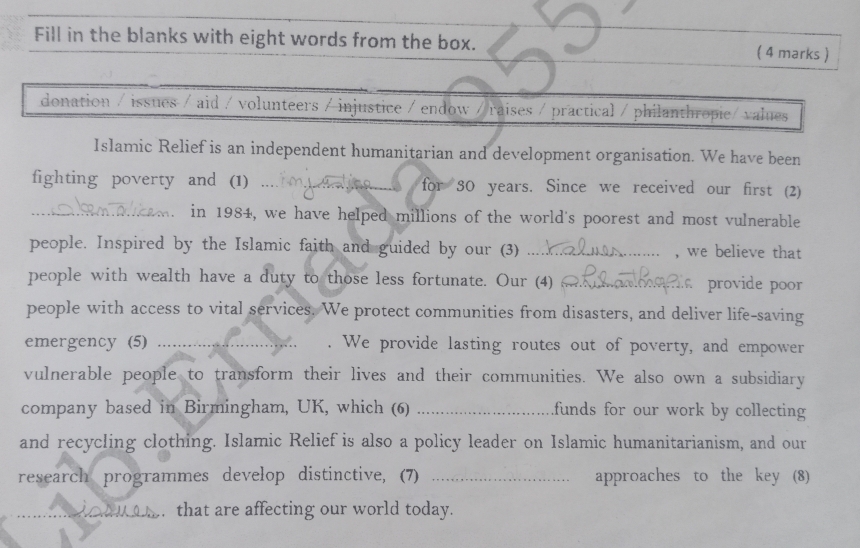 Fill in the blanks with eight words from the box.
( 4 marks )
donation / issues / aid / volunteers / injustice / endow / raises / practical / philanthropic / values
Islamic Relief is an independent humanitarian and development organisation. We have been
fighting poverty and (1) .... injustice ...... for 30 years. Since we received our first (2)
.................. in 1984, we have helped millions of the world's poorest and most vulnerable
people. Inspired by the Islamic faith and guided by our (3) .... values ........ , we believe that
people with wealth have a duty to those less fortunate. Our (4) philanthropic provide poor
people with access to vital services. We protect communities from disasters, and deliver life-saving
emergency (5) ............................ . We provide lasting routes out of poverty, and empower
vulnerable people to transform their lives and their communities. We also own a subsidiary
company based in Birmingham, UK, which (6) ............................funds for our work by collecting
and recycling clothing. Islamic Relief is also a policy leader on Islamic humanitarianism, and our
research programmes develop distinctive, (7) ............................ approaches to the key (8)
.......... issues . that are affecting our world today.
Lib.Erriada 955